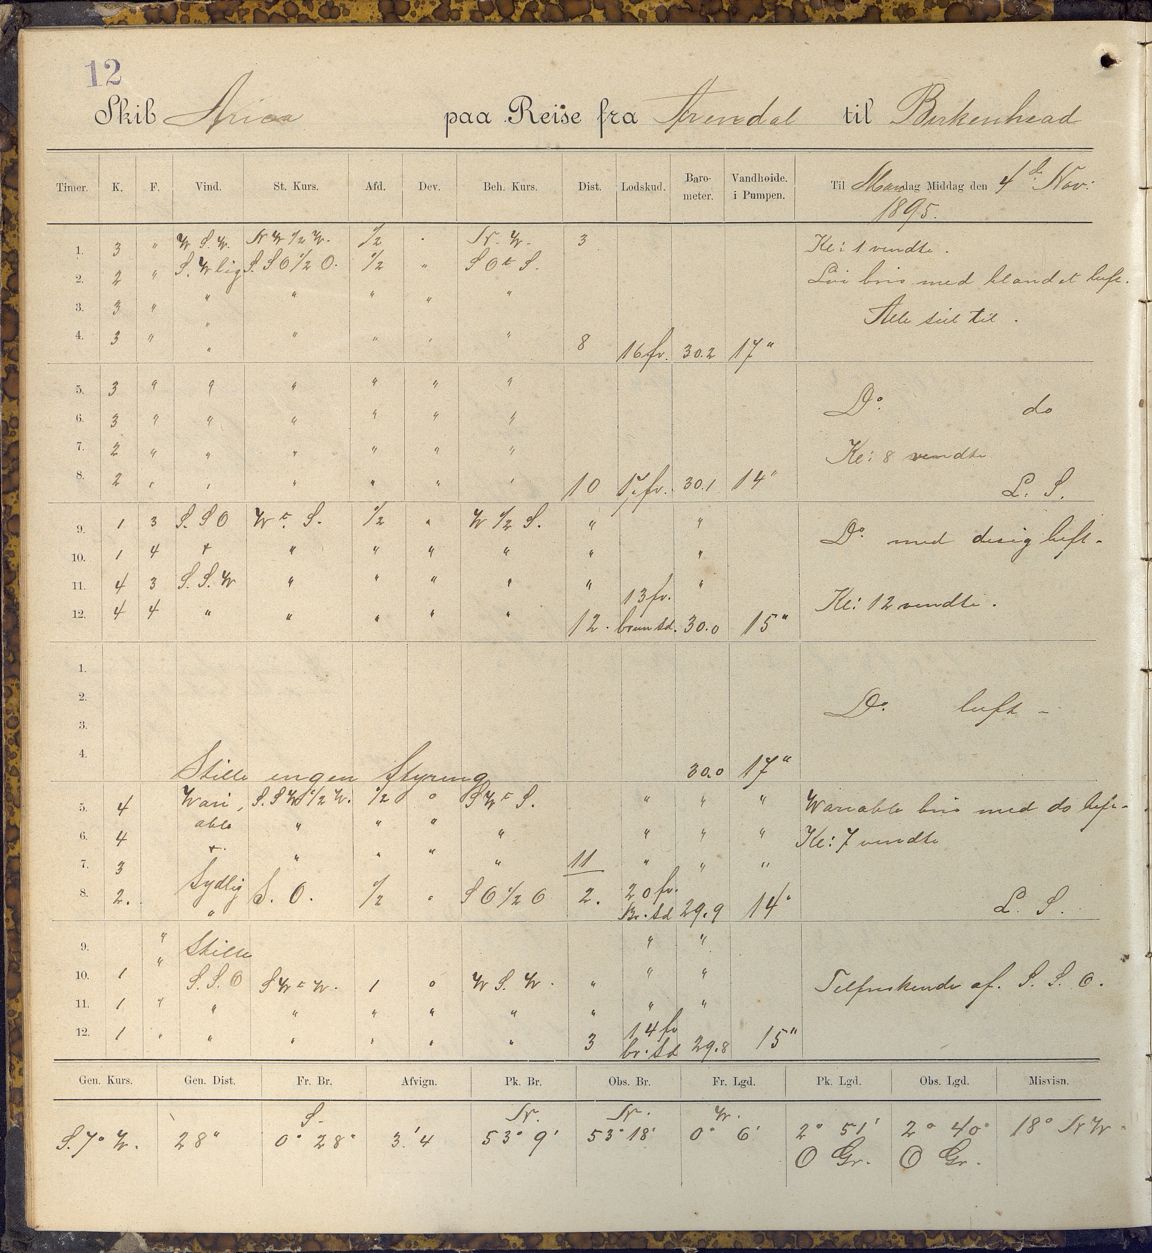 12
Skib Arica paa Reise fra Arendal til Birkenhead
Timer. K. F. Vind. St. Kurs. Afd. Dev. Beh. Kurs. Dist. Lodskud. Baro-meter. Vandhøide. i Pumpen. Til Mandag Middag den 4de Nov: 1895.
1. 3 " W S.W. NW 1/2 W. 1/2 " N. W. 3 Kl: 1 vendte.
2. 2 " S. W lig S. S O 1/2 O. 1/2 " S O t S. bris med blandet luft.
3. 3 " " " " " " Alle seil til.
4. 3 " " " " " " 8 16 fv. 30.2 17"
5. 3 " " " " " " Do. do
6. 3 " " " " " "
7. 2 " " " " " " Kl: 8 vendte
8. 2 " " " " " " 10 17 fv. 30.1 14" L. S.
9. 1 3 S. S O W t S. 1/2 " W 1/2 S. " " Do med disig luft.
10. 1 4 + " " " " " "
11. 4 3 S. S. W " " " " " 13 fv. "
12. 4 4 " " " " " 12. brun sd. 30.0 15" Kl: 12 vendte.
1.
2. Do luft -
3.
4. Stille ingen Styring 30.0 17"
5. 4 Wari, S. S W 1/2 W. 1/2 " S W t S. " " " Wariable bris med do luft.
6. 4 able " " " " " " " Kl: 7 vendte
7. 3 +. " " " " 11 " " "
8. 2. Sydlig S. O. 1/2 " S O 1/2 O 2. 20 fv. Br. sd 29.9 14" L. S.
9. " Stille " "
10. 1 " S. S. O S W t W. 1 " W S. W. " " " Tilfriskende af. S. S. O.
11. 1 " " " " " " " " "
12. 1 " " " " " " 3 14 fv br. sd 29.8 15"
Gen. Kurs. Gen. Dist. Fr. Br. Afvign. Pk. Br. Obs. Br. Fr. Lgd. Pk. Lgd. Obs. Lgd. Misvisn.
S. N. N. W.
S. 7° W. 28" 0° 28" 3'4 53° 9' 53° 18' 0° 6' 2° 51' 2° 40" 18° N W
O Gr. O Gr.